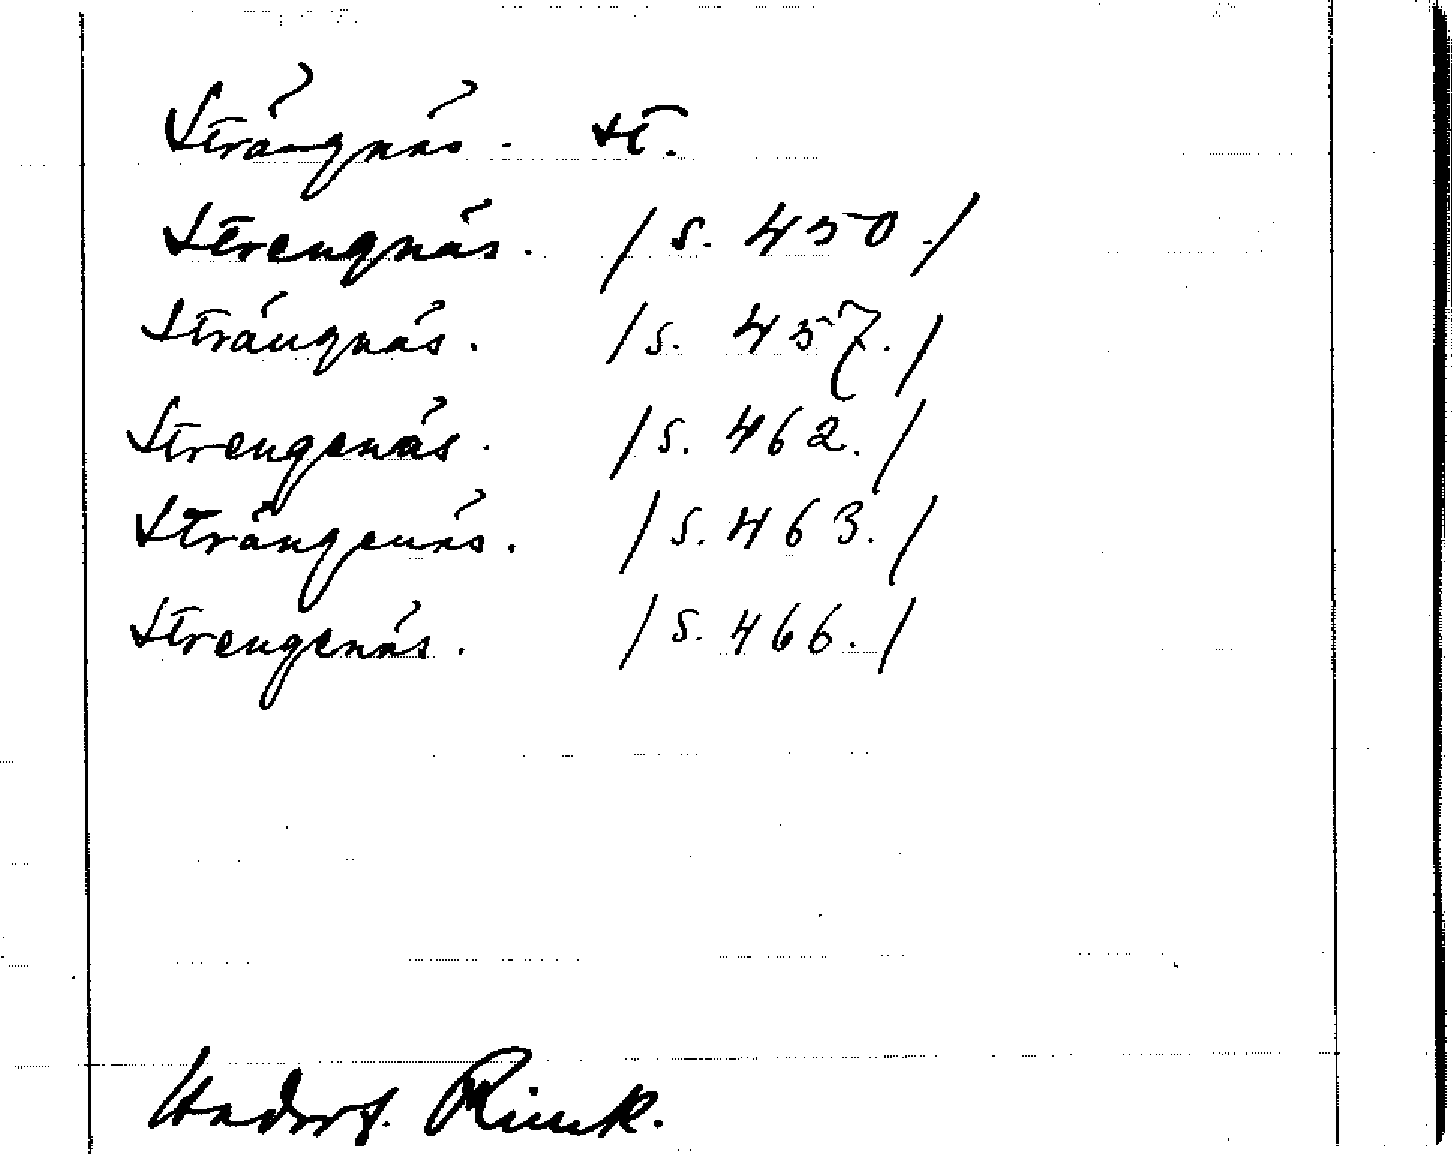 Strängnäs. st.
Strengnäs. /s. 450./
Strängnäs. /s. 457./
Strengenäs. /s. 462./
Strängenäs. /s. 463./
Strengenäs. /s. 466./
Hadorf. Rimk.